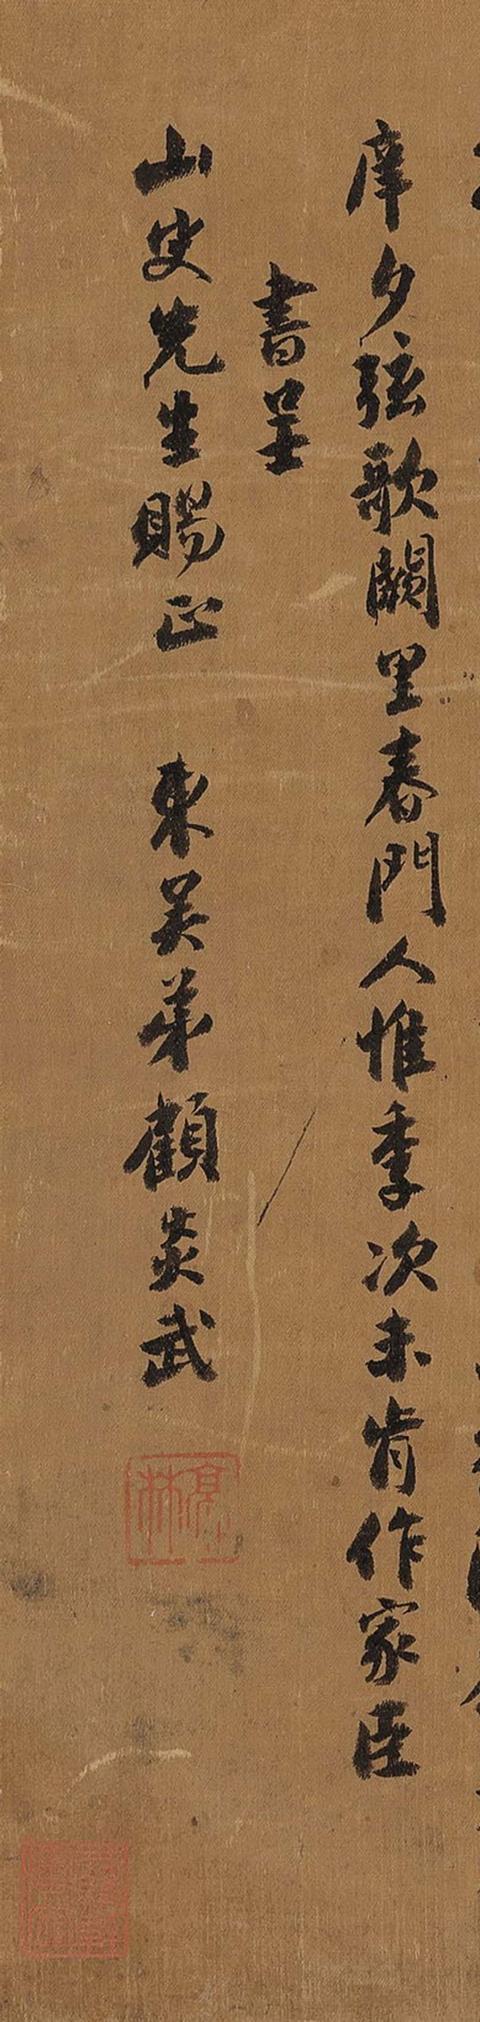 庠夕弦歌闕里春門人惟季次未肯作家臣
書呈
山史先生賜正 東吴弟顧炎武
亭林